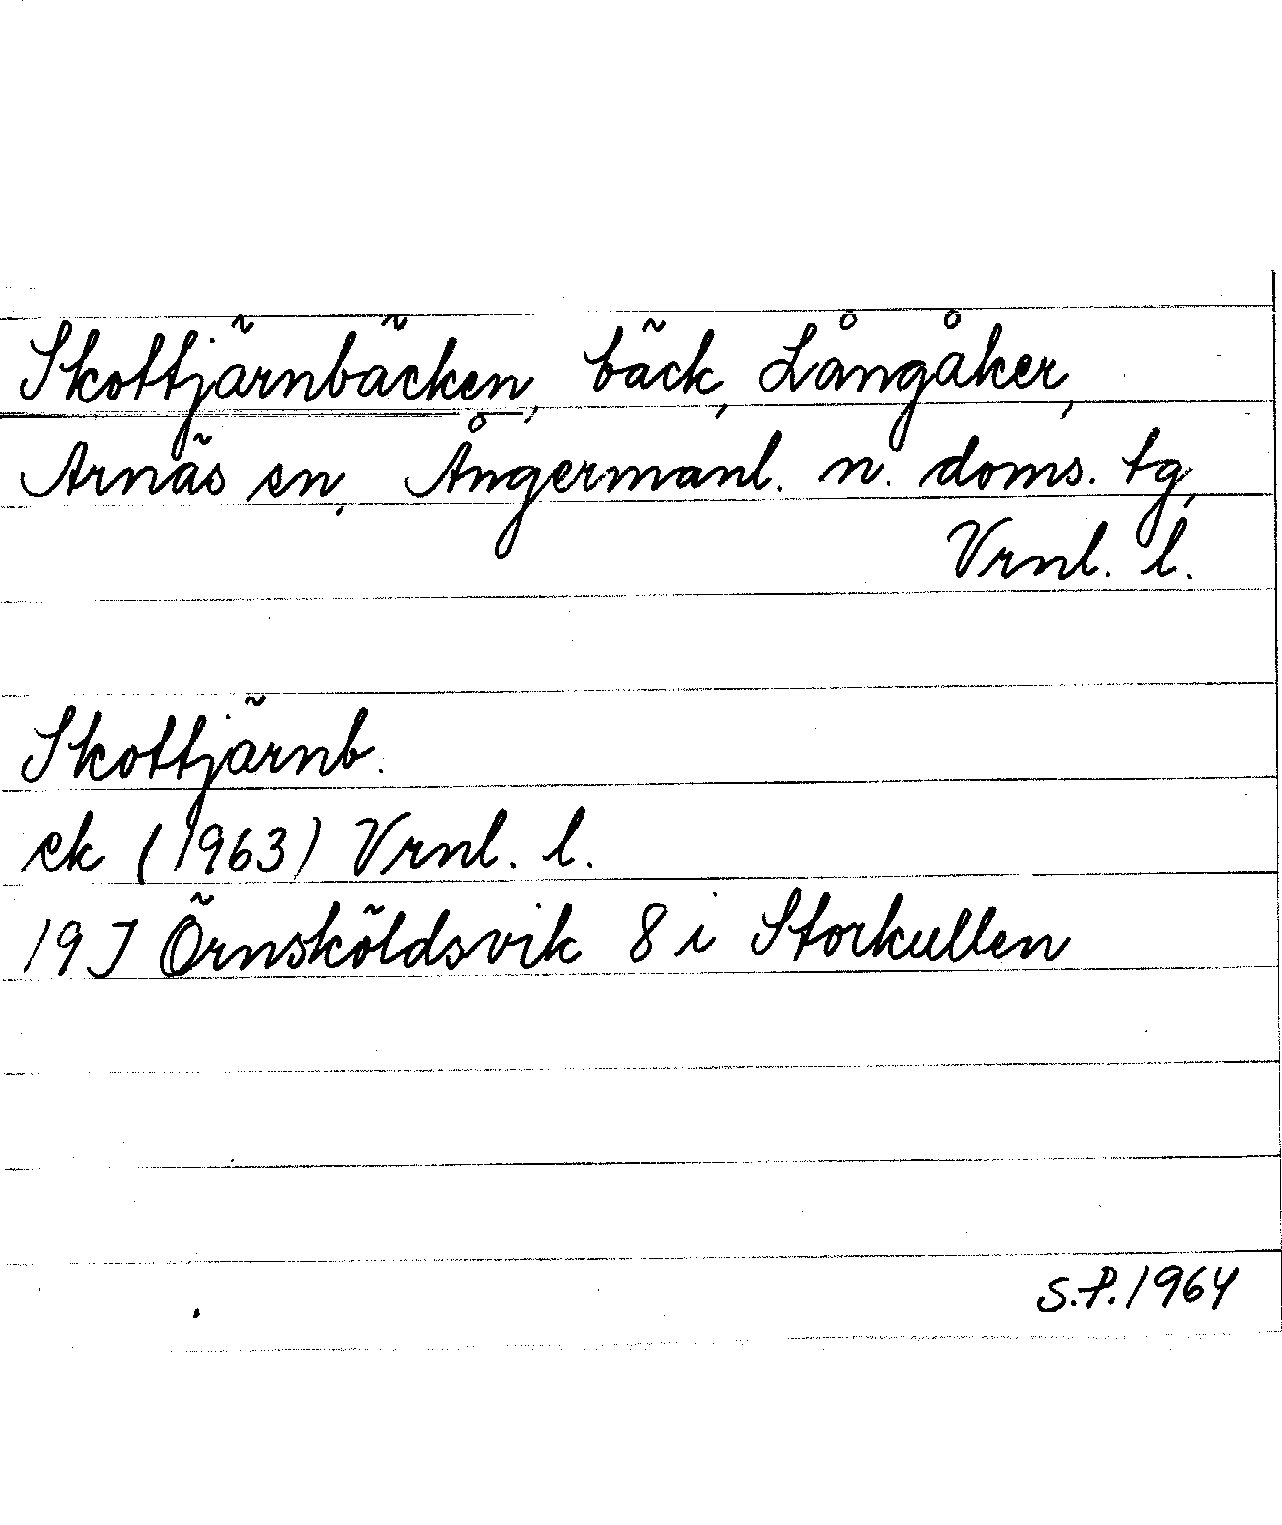 Skottjärnbäcken, bäck, Långåker,
Arnäs sn, Ångermanl. n. doms. tg,
Vrnl. l.
Skottjärnb.
ek (1963) Vrnl. l.
19 J Örnsköldsvik 8 i Storkullen
S.P. 1964